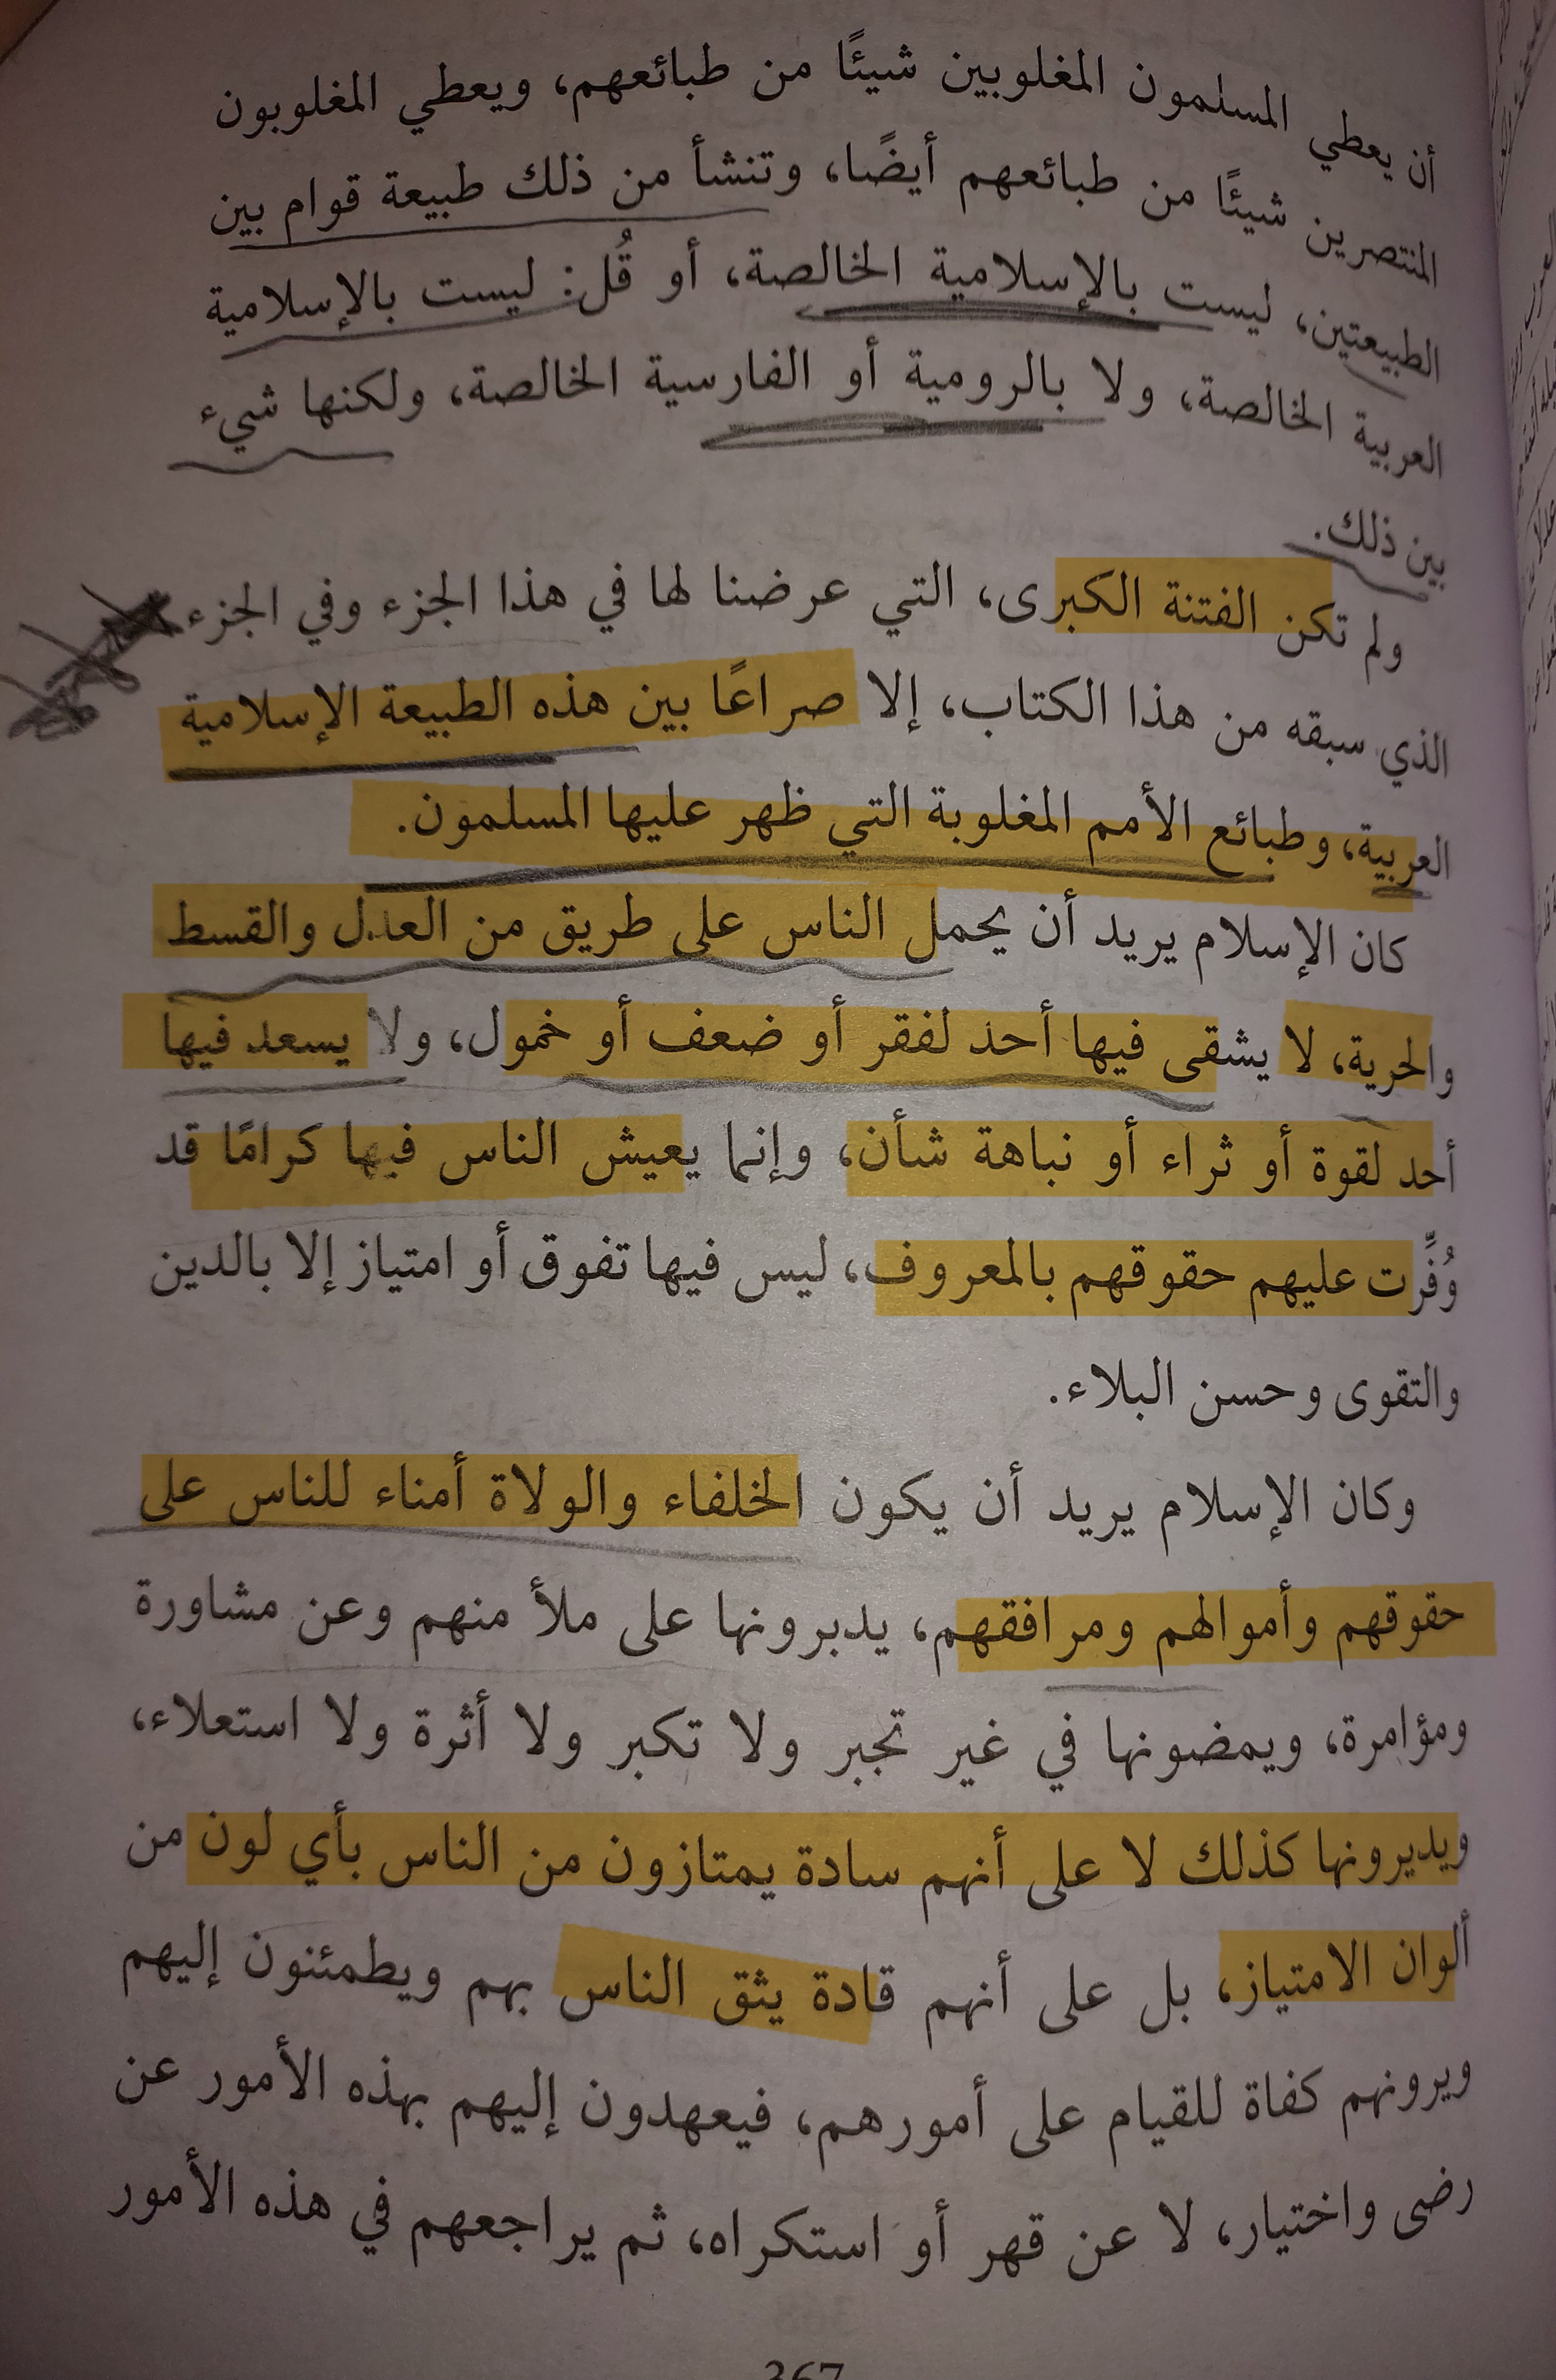 أن يعطي المسلمون المغلوبين شيئًا من طبائعهم، ويعطي المغلوبون
المنتصرين شيئًا من طبائعهم أيضًا، وتنشأ من ذلك طبيعة قوام بين
الطبيعتين، ليست بالإسلامية الخالصة، أو قُل: ليست بالإسلامية
العربية الخالصة، ولا بالرومية أو الفارسية الخالصة، ولكنها شيء
بين ذلك.
ولم تكن الفتنة الكبرى، التي عرضنا لها في هذا الجزء وفي الجزء
الذي سبقه من هذا الكتاب، إلا صراعًا بين هذه الطبيعة الإسلامية
العربية، وطبائع الأمم المغلوبة التي ظهر عليها المسلمون.
كان الإسلام يريد أن يحمل الناس على طريق من العدل والقسط
والحرية، لا يشقى فيها أحد لفقر أو ضعف أو خمول، ولا يسعد فيها
أحد لقوة أو ثراء أو نباهة شأن، وإنما يعيش الناس فيها كرامًا قد
وُفِّرت عليهم حقوقهم بالمعروف، ليس فيها تفوق أو امتياز إلا بالدين
والتقوى وحسن البلاء.
وكان الإسلام يريد أن يكون الخلفاء والولاة أمناء للناس على
حقوقهم وأموالهم ومرافقهم، يدبرونها على ملأ منهم وعن مشاورة
ومؤامرة، ويمضونها في غير تجبر ولا تكبر ولا أثرة ولا استعلاء،
ويديرونها كذلك لا على أنهم سادة يمتازون من الناس بأي لون من
ألوان الامتياز، بل على أنهم قادة يثق الناس بهم ويطمئنون إليهم
ويرونهم كفاة للقيام على أمورهم، فيعهدون إليهم بهذه الأمور عن
رضى واختيار، لا عن قهر أو استكراه، ثم يراجعهم في هذه الأمور
367